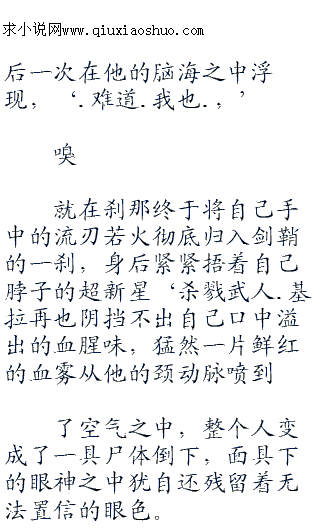 求小说网www.qiuxiaoshuo.com
后一次在他的脑海之中浮
现，‘.难道.我也.，’
嗅
就在刹那终于将自己手
中的流刃若火彻底归入剑鞘
的一刹，身后紧紧捂着自己
脖子的超新星‘杀戮武人.基
拉再也阴挡不出自己口中溢
出的血腥味，猛然一片鲜红
的血雾从他的颈动脉喷到
了空气之中，整个人变
成了一具尸体倒下，面具下
的眼神之中犹自还残留着无
法置信的眼色。